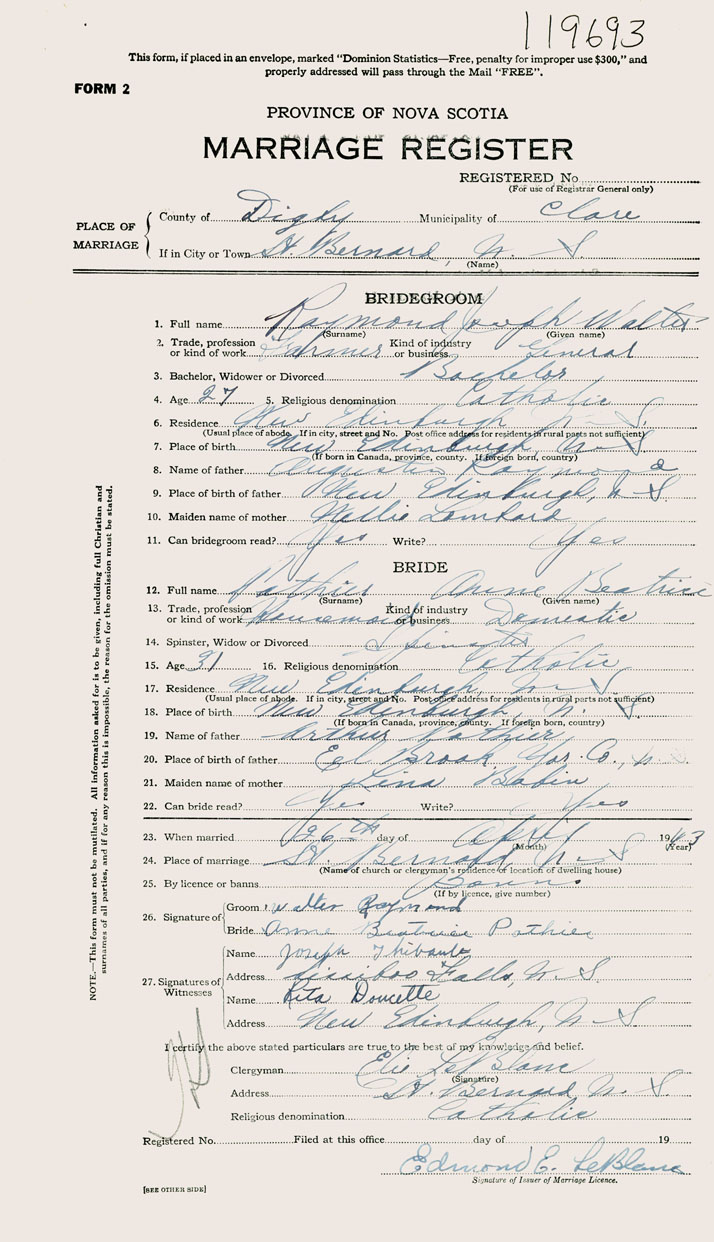 119693
This form, if placed in an envelope, marked "Dominion Statistics—Free, penalty for improper use $300," and
properly addressed will pass through the Mail "FREE".
FORM 2
PROVINCE OF NOVA SCOTIA
MARRIAGE REGISTER
REGISTERED No.
(For use of Registrar General only)
PLACE OF MARRIAGE
County of Digby Municipality of Clare
If in City or Town St. Bernard, N. S.
(Name)
BRIDEGROOM
1. Full name Raymond Joseph Walter
(Surname) (Given name)
2. Trade, profession or kind of work Farmer Kind of industry or business General
3. Bachelor, Widower or Divorced Bachelor
4. Age 27 5. Religious denomination Catholic
6. Residence New Edinburgh N S
(Usual place of abode. If in city, street and No. Post office address for residents in rural parts not sufficient)
7. Place of birth New Edinburgh N S
(If born in Canada, province, county. If foreign born, country)
8. Name of father Augustin Raymond
9. Place of birth of father New Edinburgh, N S
10. Maiden name of mother Nellie Lombard
11. Can bridegroom read? Yes Write? Yes
BRIDE
12. Full name Pothier Anne Beatrice
(Surname) (Given name)
13. Trade, profession or kind of work Housemaid Kind of industry or business Domestic
14. Spinster, Widow or Divorced Spinster
15. Age 31 16. Religious denomination Catholic
17. Residence New Edinburgh, N S
(Usual place of abode. If in city, street and No. Post office address for residents in rural parts not sufficient)
18. Place of birth New Edinburgh, N. S
(If born in Canada, province, county. If foreign born, country)
19. Name of father Arthur Pothier
20. Place of birth of father Eel Brook Yar. Co., N. S.
21. Maiden name of mother Lina Babin
22. Can bride read? Yes Write? Yes
23. When married 26th day of April 1943
(Month) (Year)
24. Place of marriage St. Bernard N S
(Name of church or clergyman's residence or location of dwelling house)
25. By licence or banns Banns
(If by licence, give number)
26. Signature of
Groom Walter Raymond
Bride Anne Beatrice Pothier
27. Signatures of Witnesses
Name Joseph Thibault
Address Sissiboo Falls, N. S.
Name Rita Doucette
Address New Edinburgh, N S
I certify the above stated particulars are true to the best of my knowledge and belief.
Clergyman Elie LeBlanc
(Signature)
Address St. Bernard N. S
Religious denomination Catholic
Registered No. Filed at this office day of 19
Edmond E. LeBlanc
Signature of Issuer of Marriage Licence.
[SEE OTHER SIDE]
NOTE.—This form must not be mutilated. All information asked for is to be given, including full Christian and
surnames of all parties, and if for any reason this is impossible, the reason for the omission must be stated.